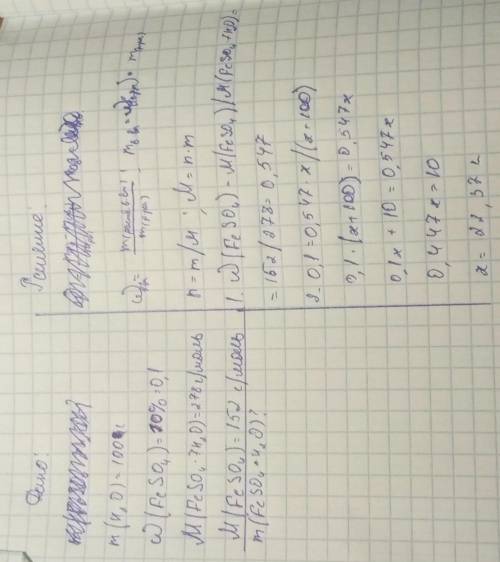 Дано:
m(H₂O) = 100 г
ω(FeSO₄) = 10% = 0,1
M(FeSO₄·7H₂O) = 278 г/моль
M(FeSO₄) = 152 г/моль
m(FeSO₄·H₂O)?
Решение:
n = m/M; M = n·m
1. ω(FeSO₄) = M(FeSO₄)/M(FeSO₄·7H₂O) =
= 152/278 = 0,547
2. 0,1 = 0,547·x/(x+100)
0,1·(x+100) = 0,547x
0,1x + 10 = 0,547x
0,447x = 10
x = 22,37 г